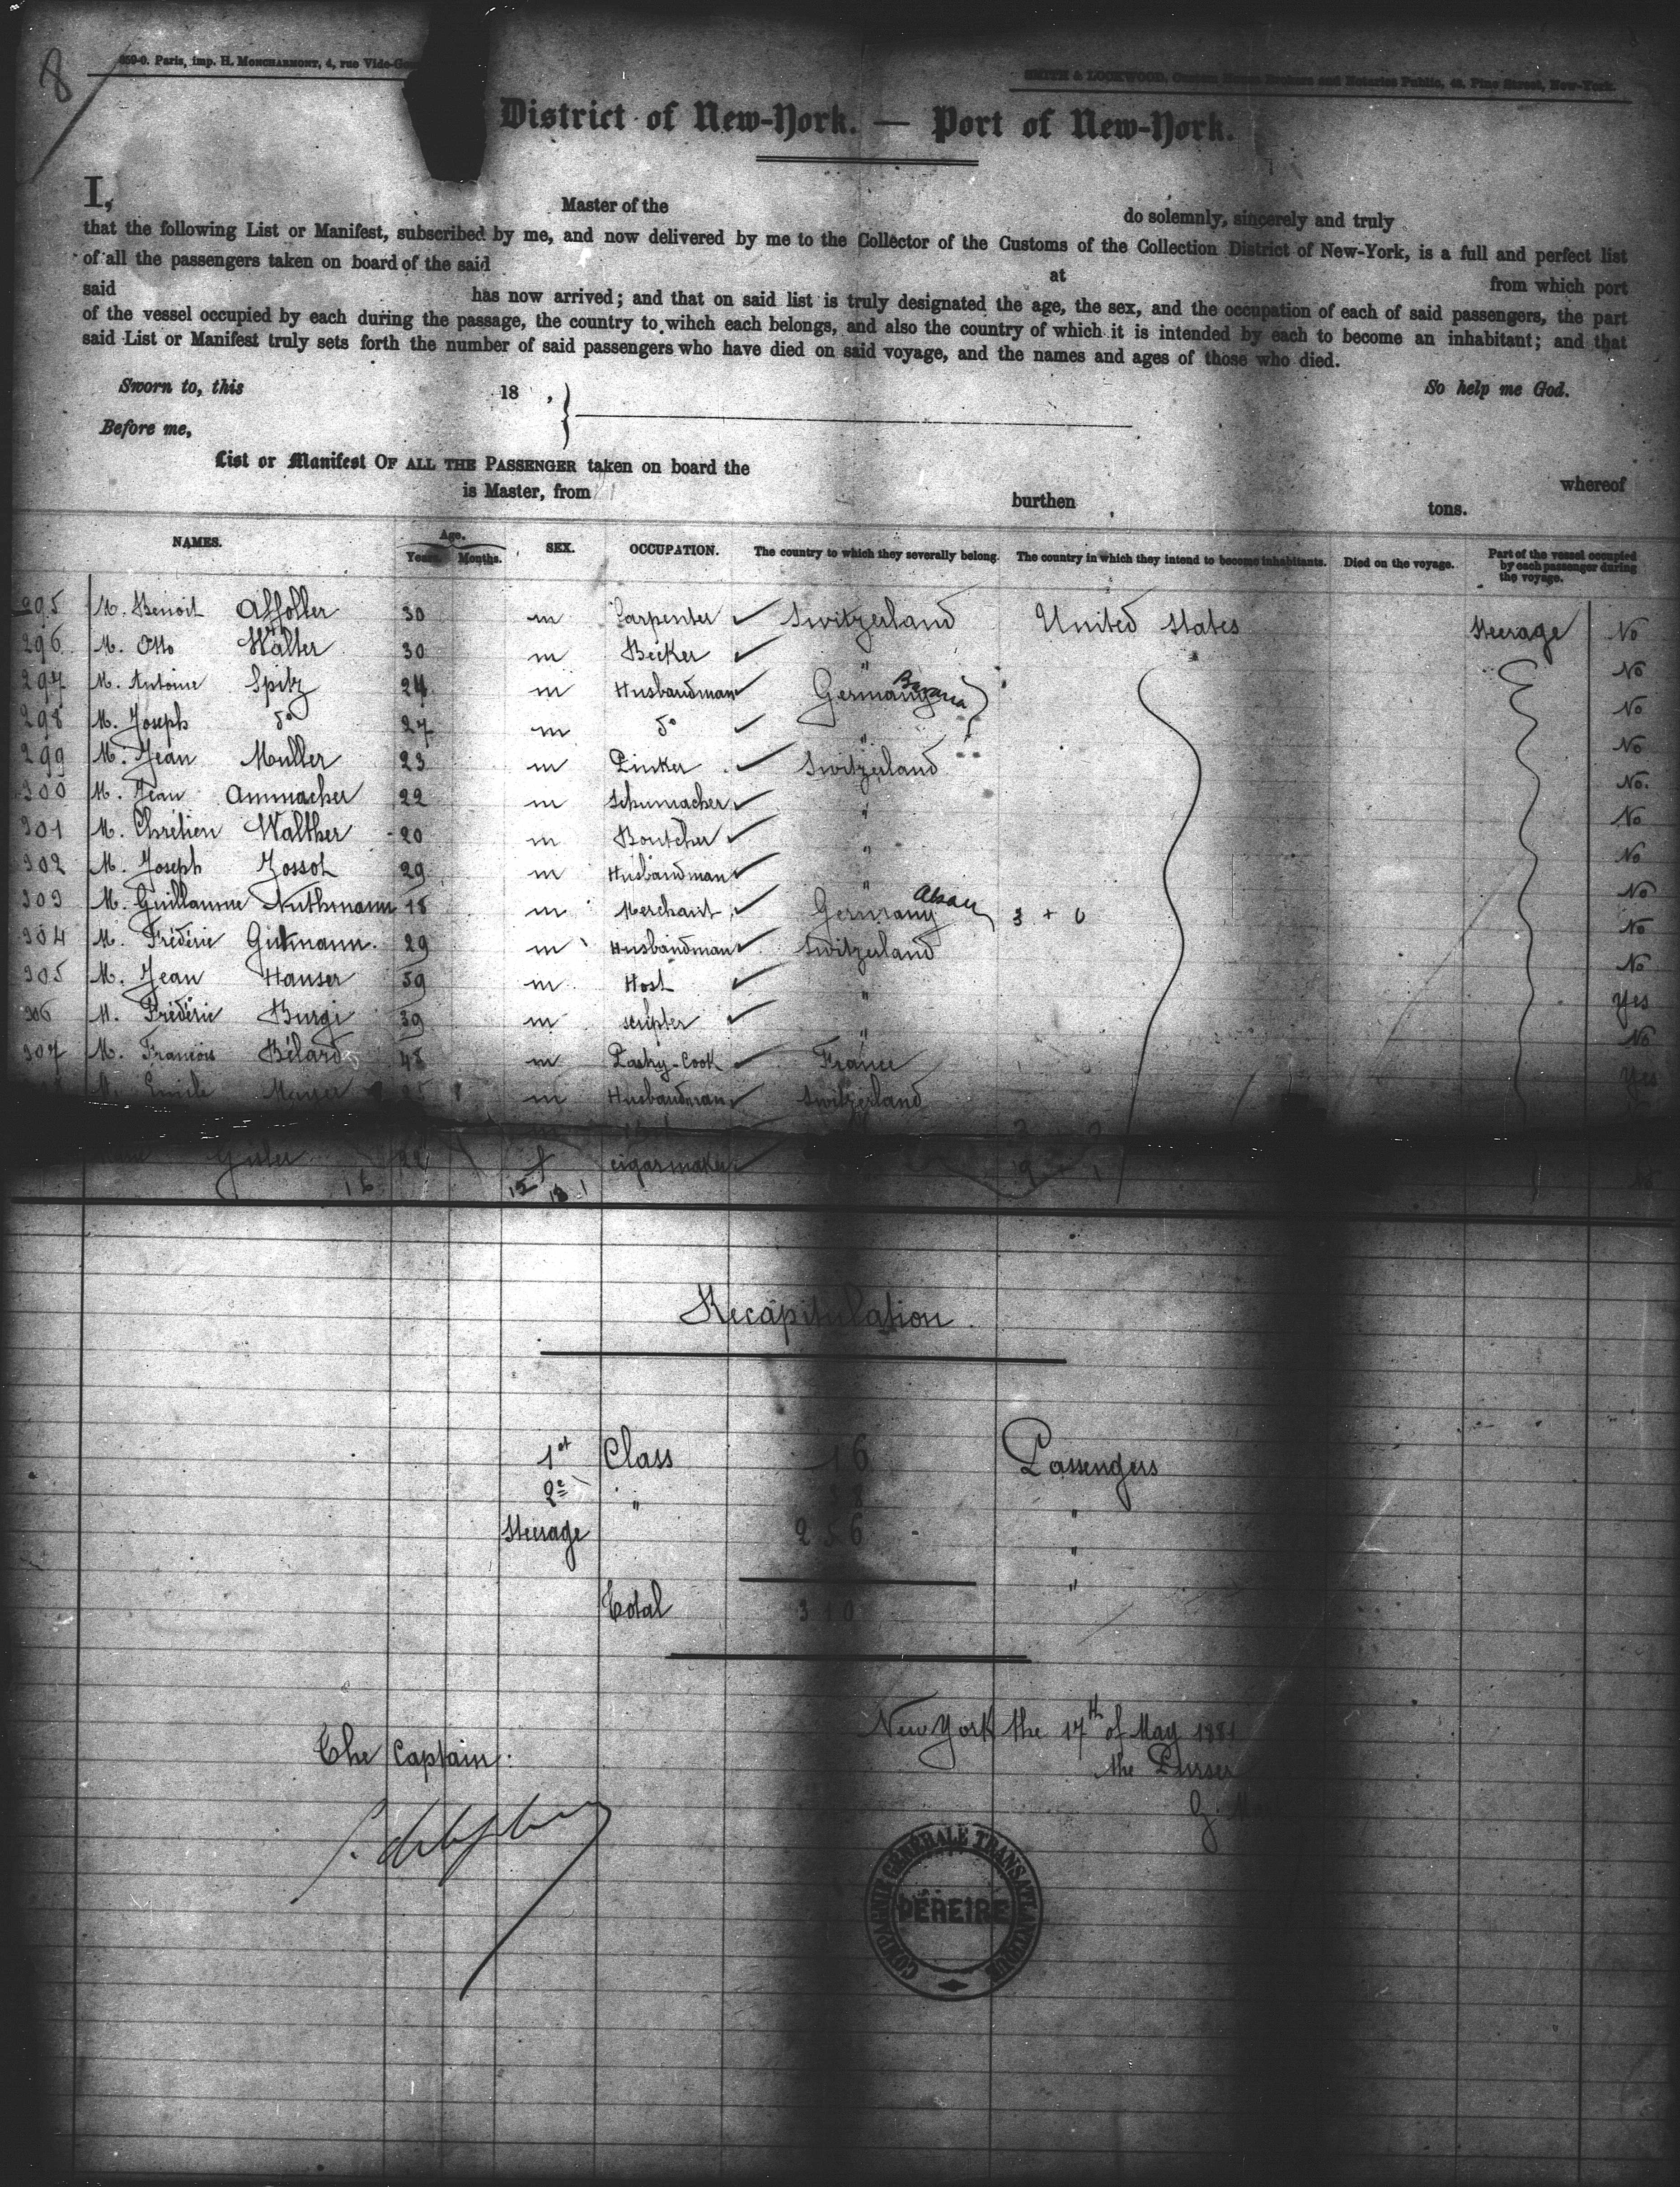 8
359-0. Paris, imp. H. MONCHARMONT, 4, rue Vide-
SMITH & LOCKWOOD, Custom House Brokers and Notaries Public, Pine Street, New-York.
District of New-York. — Port of New-York.
I, Master of the do solemnly, sincerely and truly
that the following List or Manifest, subscribed by me, and now delivered by me to the Collector of the Customs of the Collection District of New-York, is a full and perfect list
of all the passengers taken on board of the said at from which port
said has now arrived; and that on said list is truly designated the age, the sex, and the occupation of each of said passengers, the part
of the vessel occupied by each during the passage, the country to wihch each belongs, and also the country of which it is intended by each to become an inhabitant; and that
said List or Manifest truly sets forth the number of said passengers who have died on said voyage, and the names and ages of those who died.
Sworn to, this 18 , So help me God.
Before me,
List or Manifest OF ALL THE PASSENGER taken on board the whereof
is Master, from burthen , tons.
NAMES. Age. Years. Months. SEX. OCCUPATION. The country to which they severally belong. The country in which they intend to become inhabitants. Died on the voyage. Part of the vessel occupied by each passenger during the voyage.
295 M. Benoit Affolter 30 m Carpenter ✓ Switzerland United States Steerage No
296 M. Otto Walter 30 m Becker ✓ " No
297 M. Antoine Spitz 24 m Husbandman ✓ Germany Bavaria No
298 M. Joseph do 27 m do ✓ " No
299 M. Jean Muller 23 m Pinker ✓ Switzerland No.
300 M. Jean Ammacher 22 m Schumacher ✓ " No
301 M. Chrétien Walther 20 m Boutcher ✓ " No
302 M. Joseph Jossot 29 m Husbandman ✓ " No
303 M. Guillaume Nuthmann 18 m Merchant ✓ Germany Alsace 3 + 0 No
304 M. Frédéric Gutmann 29 m Husbandman ✓ Switzerland No
305 M. Jean Hauser 59 m Host ✓ " Yes
306 M. Frédéric Burgi 39 m scripter ✓ " No
307 M. Francois Bélard 48 m Pastry-Cook ✓ France Yes
M. Emile Mayer 25 m Husbandman ✓ Switzerland
Gisler 22 f cigarmaker ✓
Recapitulation
1st Class 16 Passengers
2e " 8 "
Steerage 256 "
Total 310 "
New York the 17th of May 1881
The Captain: the Purser
COMPAGNIE GÉNÉRALE TRANSATLANTIQUE
PEREIRE